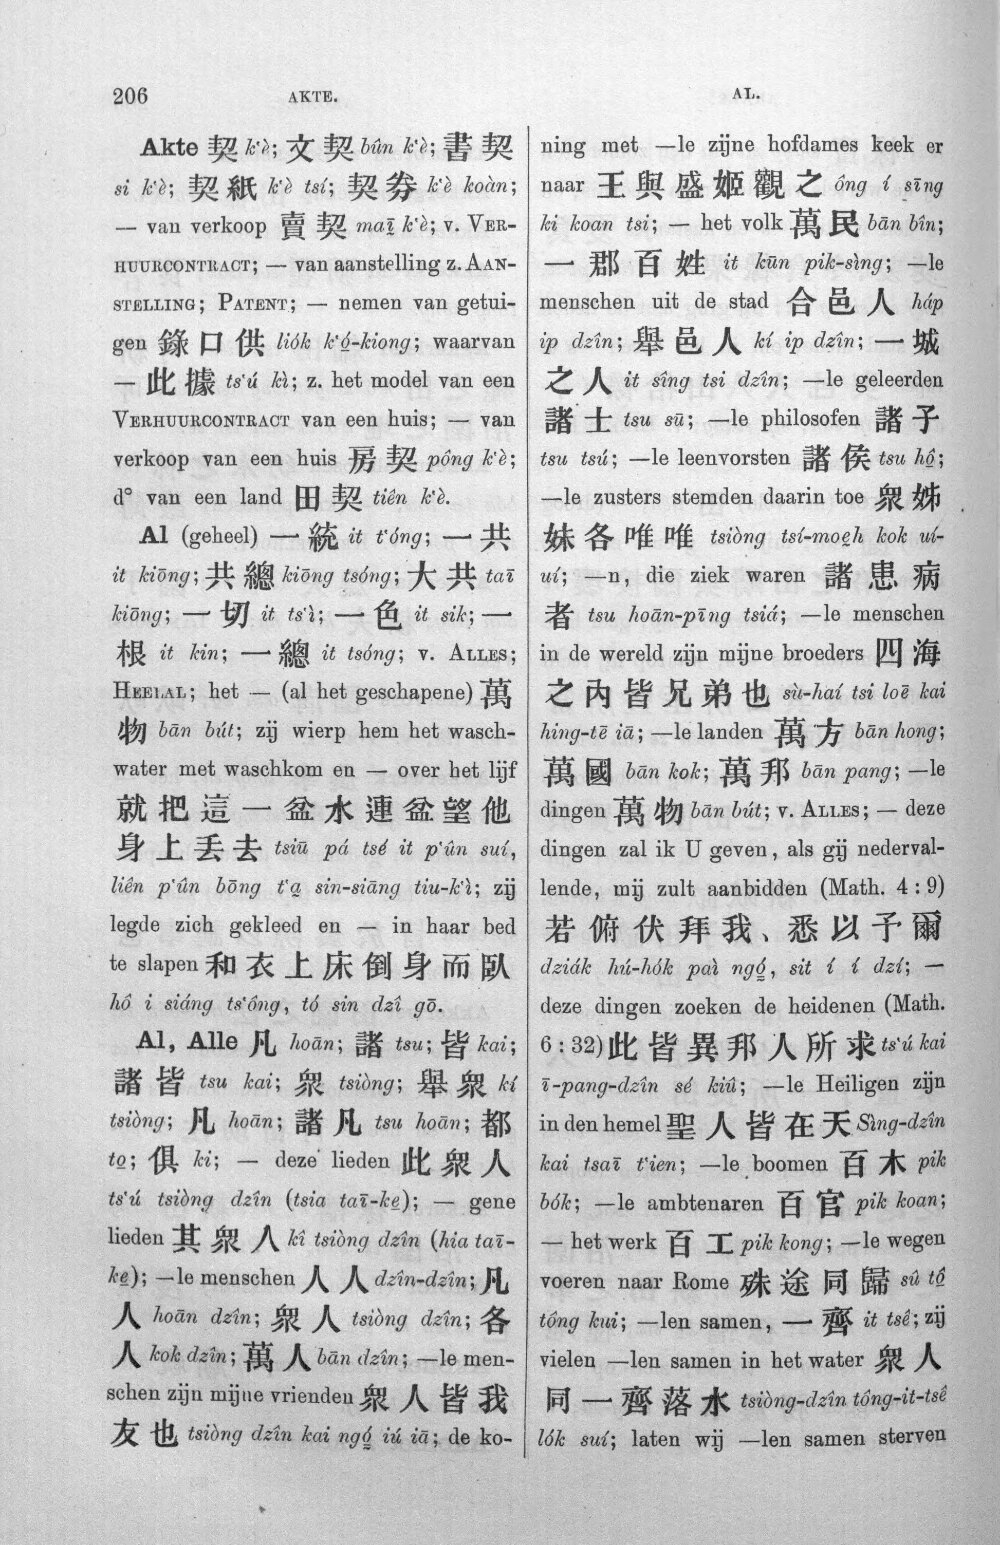 206
AKTE.
AL.
Akte 契 k'è; 文契 bûn k'è; 書契
si k'è; 契紙 k'è tsí; 契券 k'è koàn;
— van verkoop 賣契 maī k'è; v. VER-
HUURCONTRACT; — van aanstelling z. AAN-
STELLING; PATENT; — nemen van getui-
gen 錄口供 liók k'ó-kiong; waarvan
— 此據 ts'ú kì; z. het model van een
VERHUURCONTRACT van een huis; — van
verkoop van een huis 房契 pông k'è;
d° van een land 田契 tiên k'è.
Al (geheel) 一統 it t'óng; 一共
it kiōng; 共總 kiōng tsóng; 大共 taī
kiōng; 一切 it ts'ì; 一色 it sik; 一
根 it kin; 一總 it tsóng; v. ALLES;
HEELAL; het — (al het geschapene) 萬
物 bān bút; zij wierp hem het wasch-
water met waschkom en — over het lijf
就把這一盆水連盆望他
身上丢去 tsiū pá tsé it p'ûn suí,
liên p'ûn bōng t'a̤ sin-siāng tiu-k'ì; zij
legde zich gekleed en — in haar bed
te slapen 和衣上床倒身而臥
hô i siáng ts'ông, tó sin dzî gō.
Al, Alle 凡 hoān; 諸 tsu; 皆 kai;
諸皆 tsu kai; 衆 tsiòng; 舉衆 kí
tsiòng; 凡 hoān; 諸凡 tsu hoān; 都
to̤; 俱 ki; — deze lieden 此衆人
ts'ú tsiòng dzîn (tsia taī-ke̤); — gene
lieden 其衆人 kî tsiòng dzîn (hia taī-
ke̤); —le menschen 人人 dzîn-dzîn; 凡
人 hoān dzîn; 衆人 tsiòng dzîn; 各
人 kok dzîn; 萬人 bān dzîn; —le men-
schen zijn mijne vrienden 衆人皆我
友也 tsiòng dzîn kai ngó̤ iú iā; de ko-
ning met —le zijne hofdames keek er
naar 王與盛姬觀之 ông í sīng
ki koan tsi; — het volk 萬民 bān bîn;
一郡百姓 it kūn pik-sìng; —le
menschen uit de stad 合邑人 háp
ip dzîn; 舉邑人 kí ip dzîn; 一城
之人 it sîng tsi dzîn; —le geleerden
諸士 tsu sū; —le philosofen 諸子
tsu tsú; —le leenvorsten 諸侯 tsu hô̤;
—le zusters stemden daarin toe 衆姊
妹各唯唯 tsiòng tsí-moe̤h kok uí-
uí; —n, die ziek waren 諸患病
者 tsu hoān-pīng tsiá; —le menschen
in de wereld zijn mijne broeders 四海
之內皆兄弟也 sù-haí tsi loē kai
hing-tē iā; —le landen 萬方 bān hong;
萬國 bān kok; 萬邦 bān pang; —le
dingen 萬物 bān bút; v. ALLES; — deze
dingen zal ik U geven, als gij nederval-
lende, mij zult aanbidden (Math. 4 : 9)
若俯伏拜我、悉以予爾
dziák hú-hók paì ngó̤, sit í í dzí; —
deze dingen zoeken de heidenen (Math.
6 : 32) 此皆異邦人所求 ts'ú kai
ī-pang-dzîn sé kiû; —le Heiligen zijn
in den hemel 聖人皆在天 Sìng-dzîn
kai tsaī t'ien; —le boomen 百木 pik
bók; —le ambtenaren 百官 pik koan;
— het werk 百工 pik kong; —le wegen
voeren naar Rome 殊途同歸 sû tô̤
tông kui; —len samen, 一齊 it tsê; zij
vielen —len samen in het water 衆人
同一齊落水 tsiòng-dzîn tông-it-tsê
lók suí; laten wij —len samen sterven